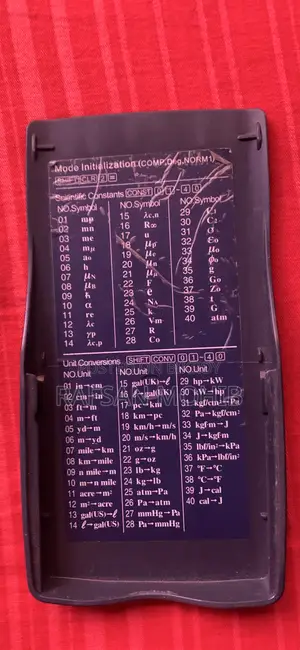 Mode Initialization (COMP,Deg,NORM1)
SHIFT CLR 2 =
Scientific Constants CONST 0 1 - 4 0
NO. Symbol
01 mp
02 mn
03 me
04 mμ
05 a₀
06 h
07 μN
08 μB
09 ħ
10 α
11 re
12 λc
13 γp
14 λc,p
NO. Symbol
15 λc,n
16 R∞
17 u
18 μp
19 μe
20 μn
21 μμ
22 F
23 e
24 NA
25 k
26 Vm
27 R
28 C₀
NO. Symbol
29 C₁
30 C₂
31 σ
32 ε₀
33 μ₀
34 φ₀
35 g
36 G₀
37 Z₀
38 t
39 G
40 atm
Unit Conversions SHIFT CONV 0 1 - 4 0
NO. Unit
01 in→cm
02 cm→in
03 ft→m
04 m→ft
05 yd→m
06 m→yd
07 mile→km
08 km→mile
09 n mile→m
10 m→n mile
11 acre→m²
12 m²→acre
13 gal(US)→ℓ
14 ℓ→gal(US)
NO. Unit
15 gal(UK)→ℓ
16 ℓ→gal(UK)
17 pc→km
18 km→pc
19 km/h→m/s
20 m/s→km/h
21 oz→g
22 g→oz
23 lb→kg
24 kg→lb
25 atm→Pa
26 Pa→atm
27 mmHg→Pa
28 Pa→mmHg
NO. Unit
29 hp→kW
30 kW→hp
31 kgf/cm²→Pa
32 Pa→kgf/cm²
33 kgf·m→J
34 J→kgf·m
35 lbf/in²→kPa
36 kPa→lbf/in²
37 °F→°C
38 °C→°F
39 J→cal
40 cal→J